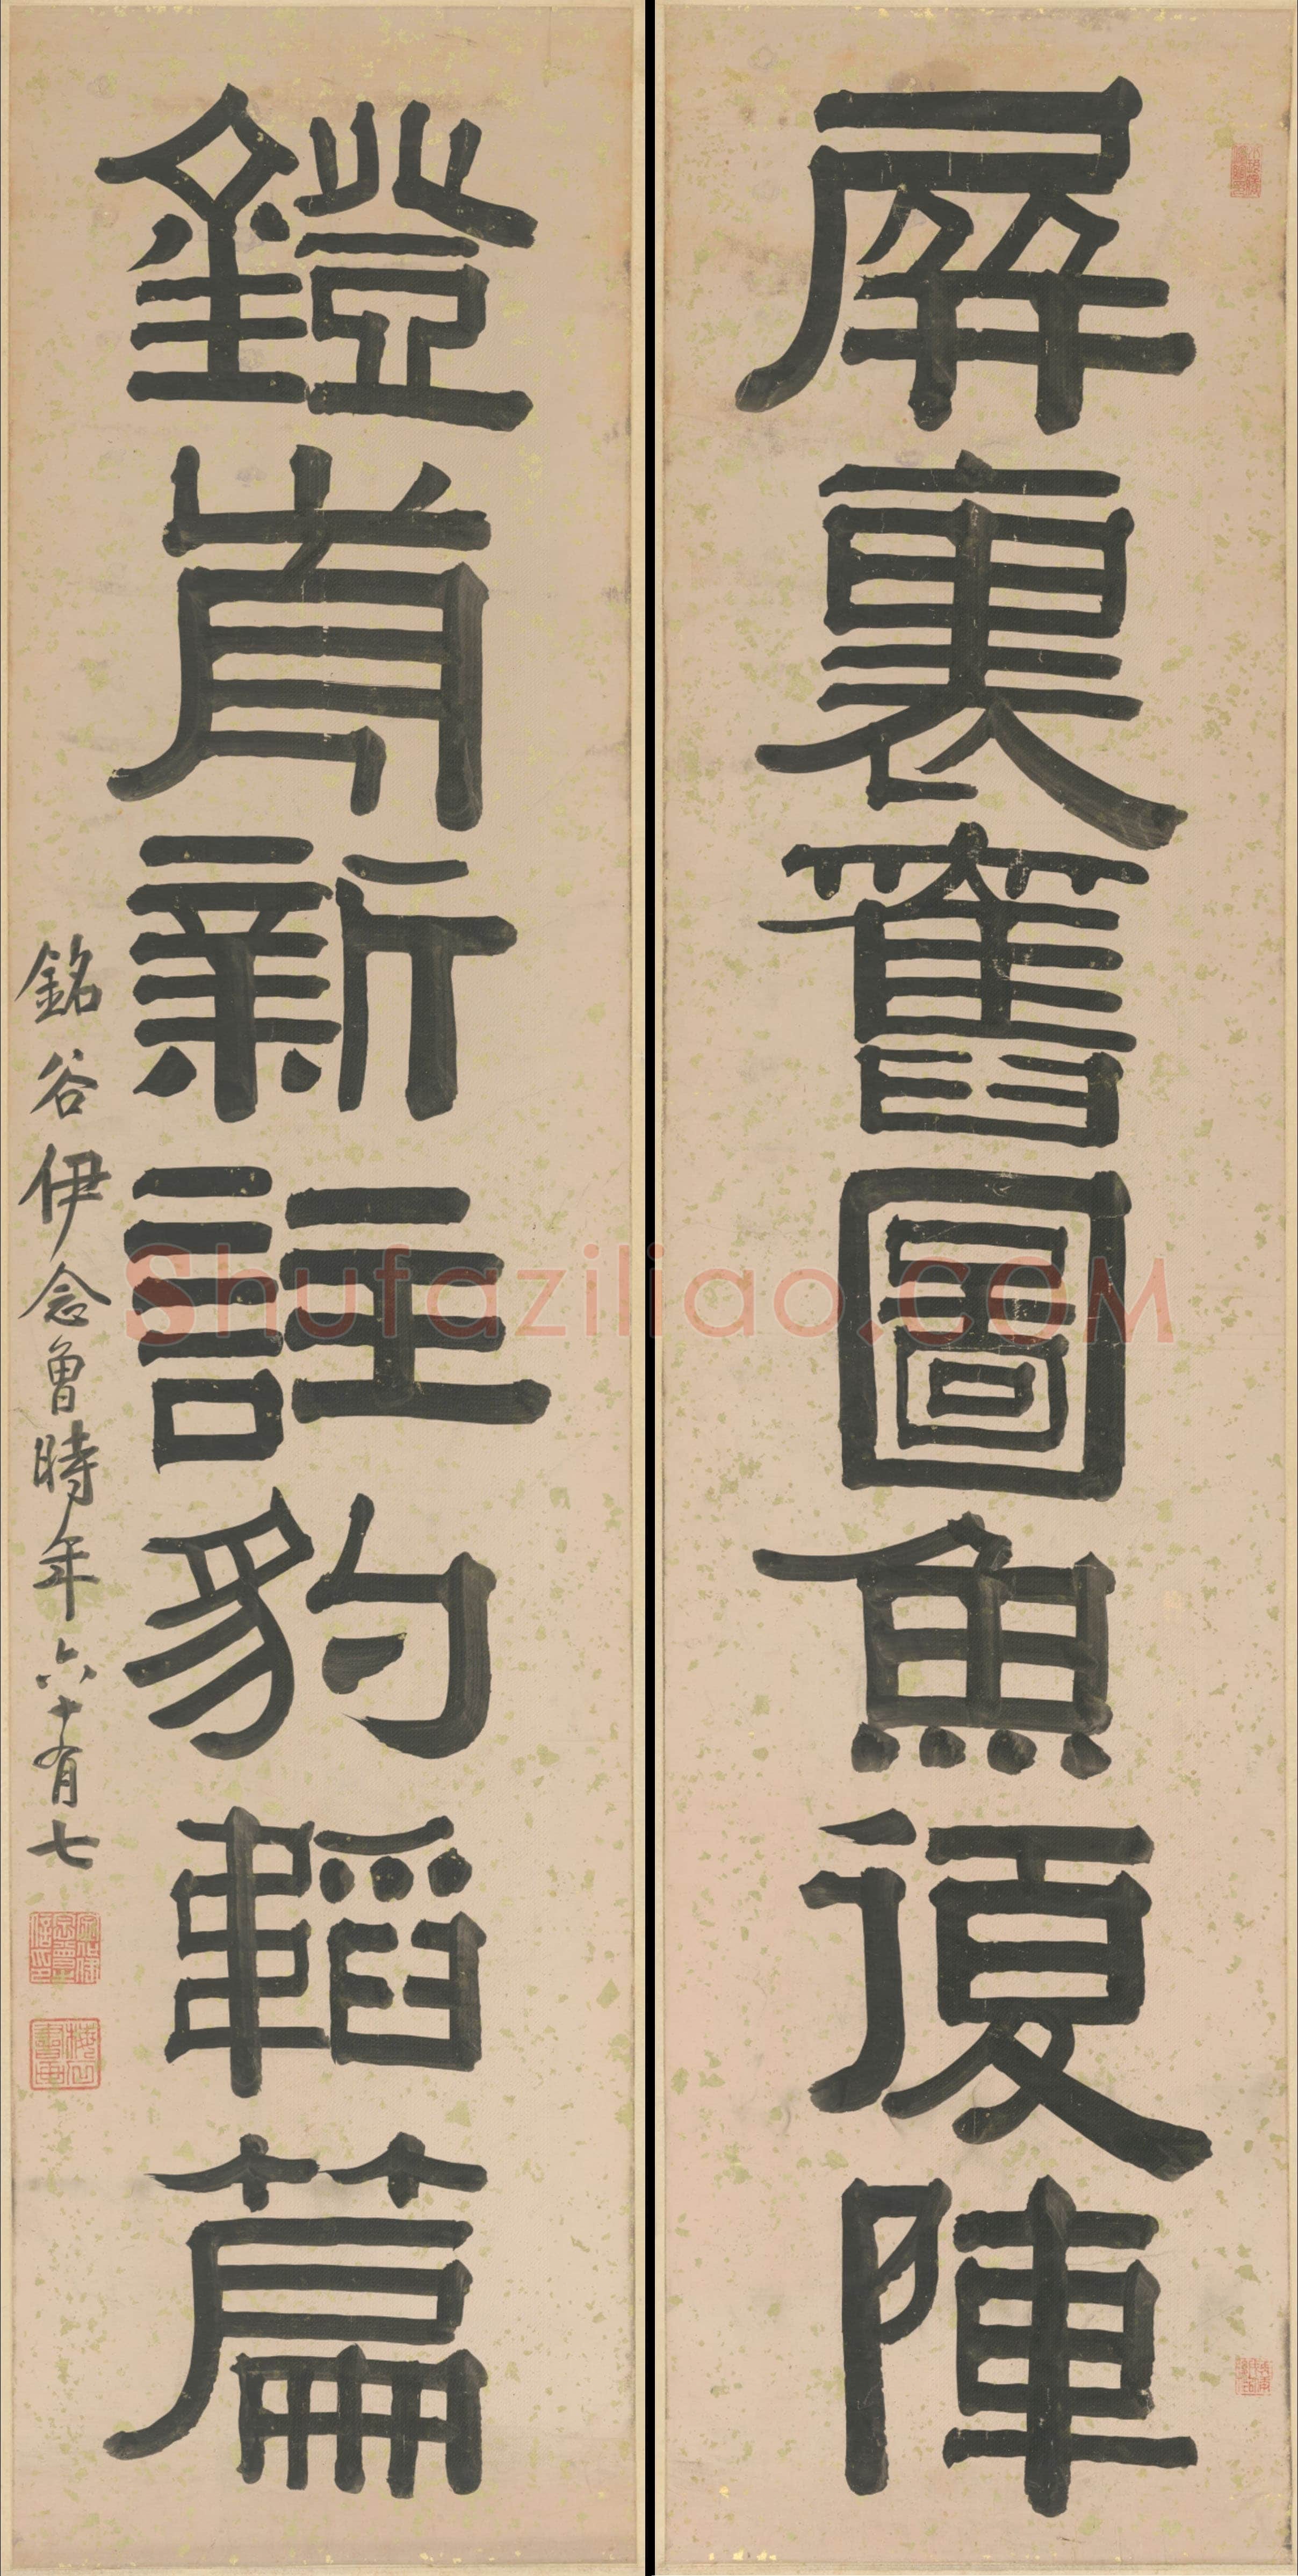 屏裏舊圖魚復陣
鐙前新註豹韜篇
銘谷伊念曾時年六十有七
Shufaziliao.COM